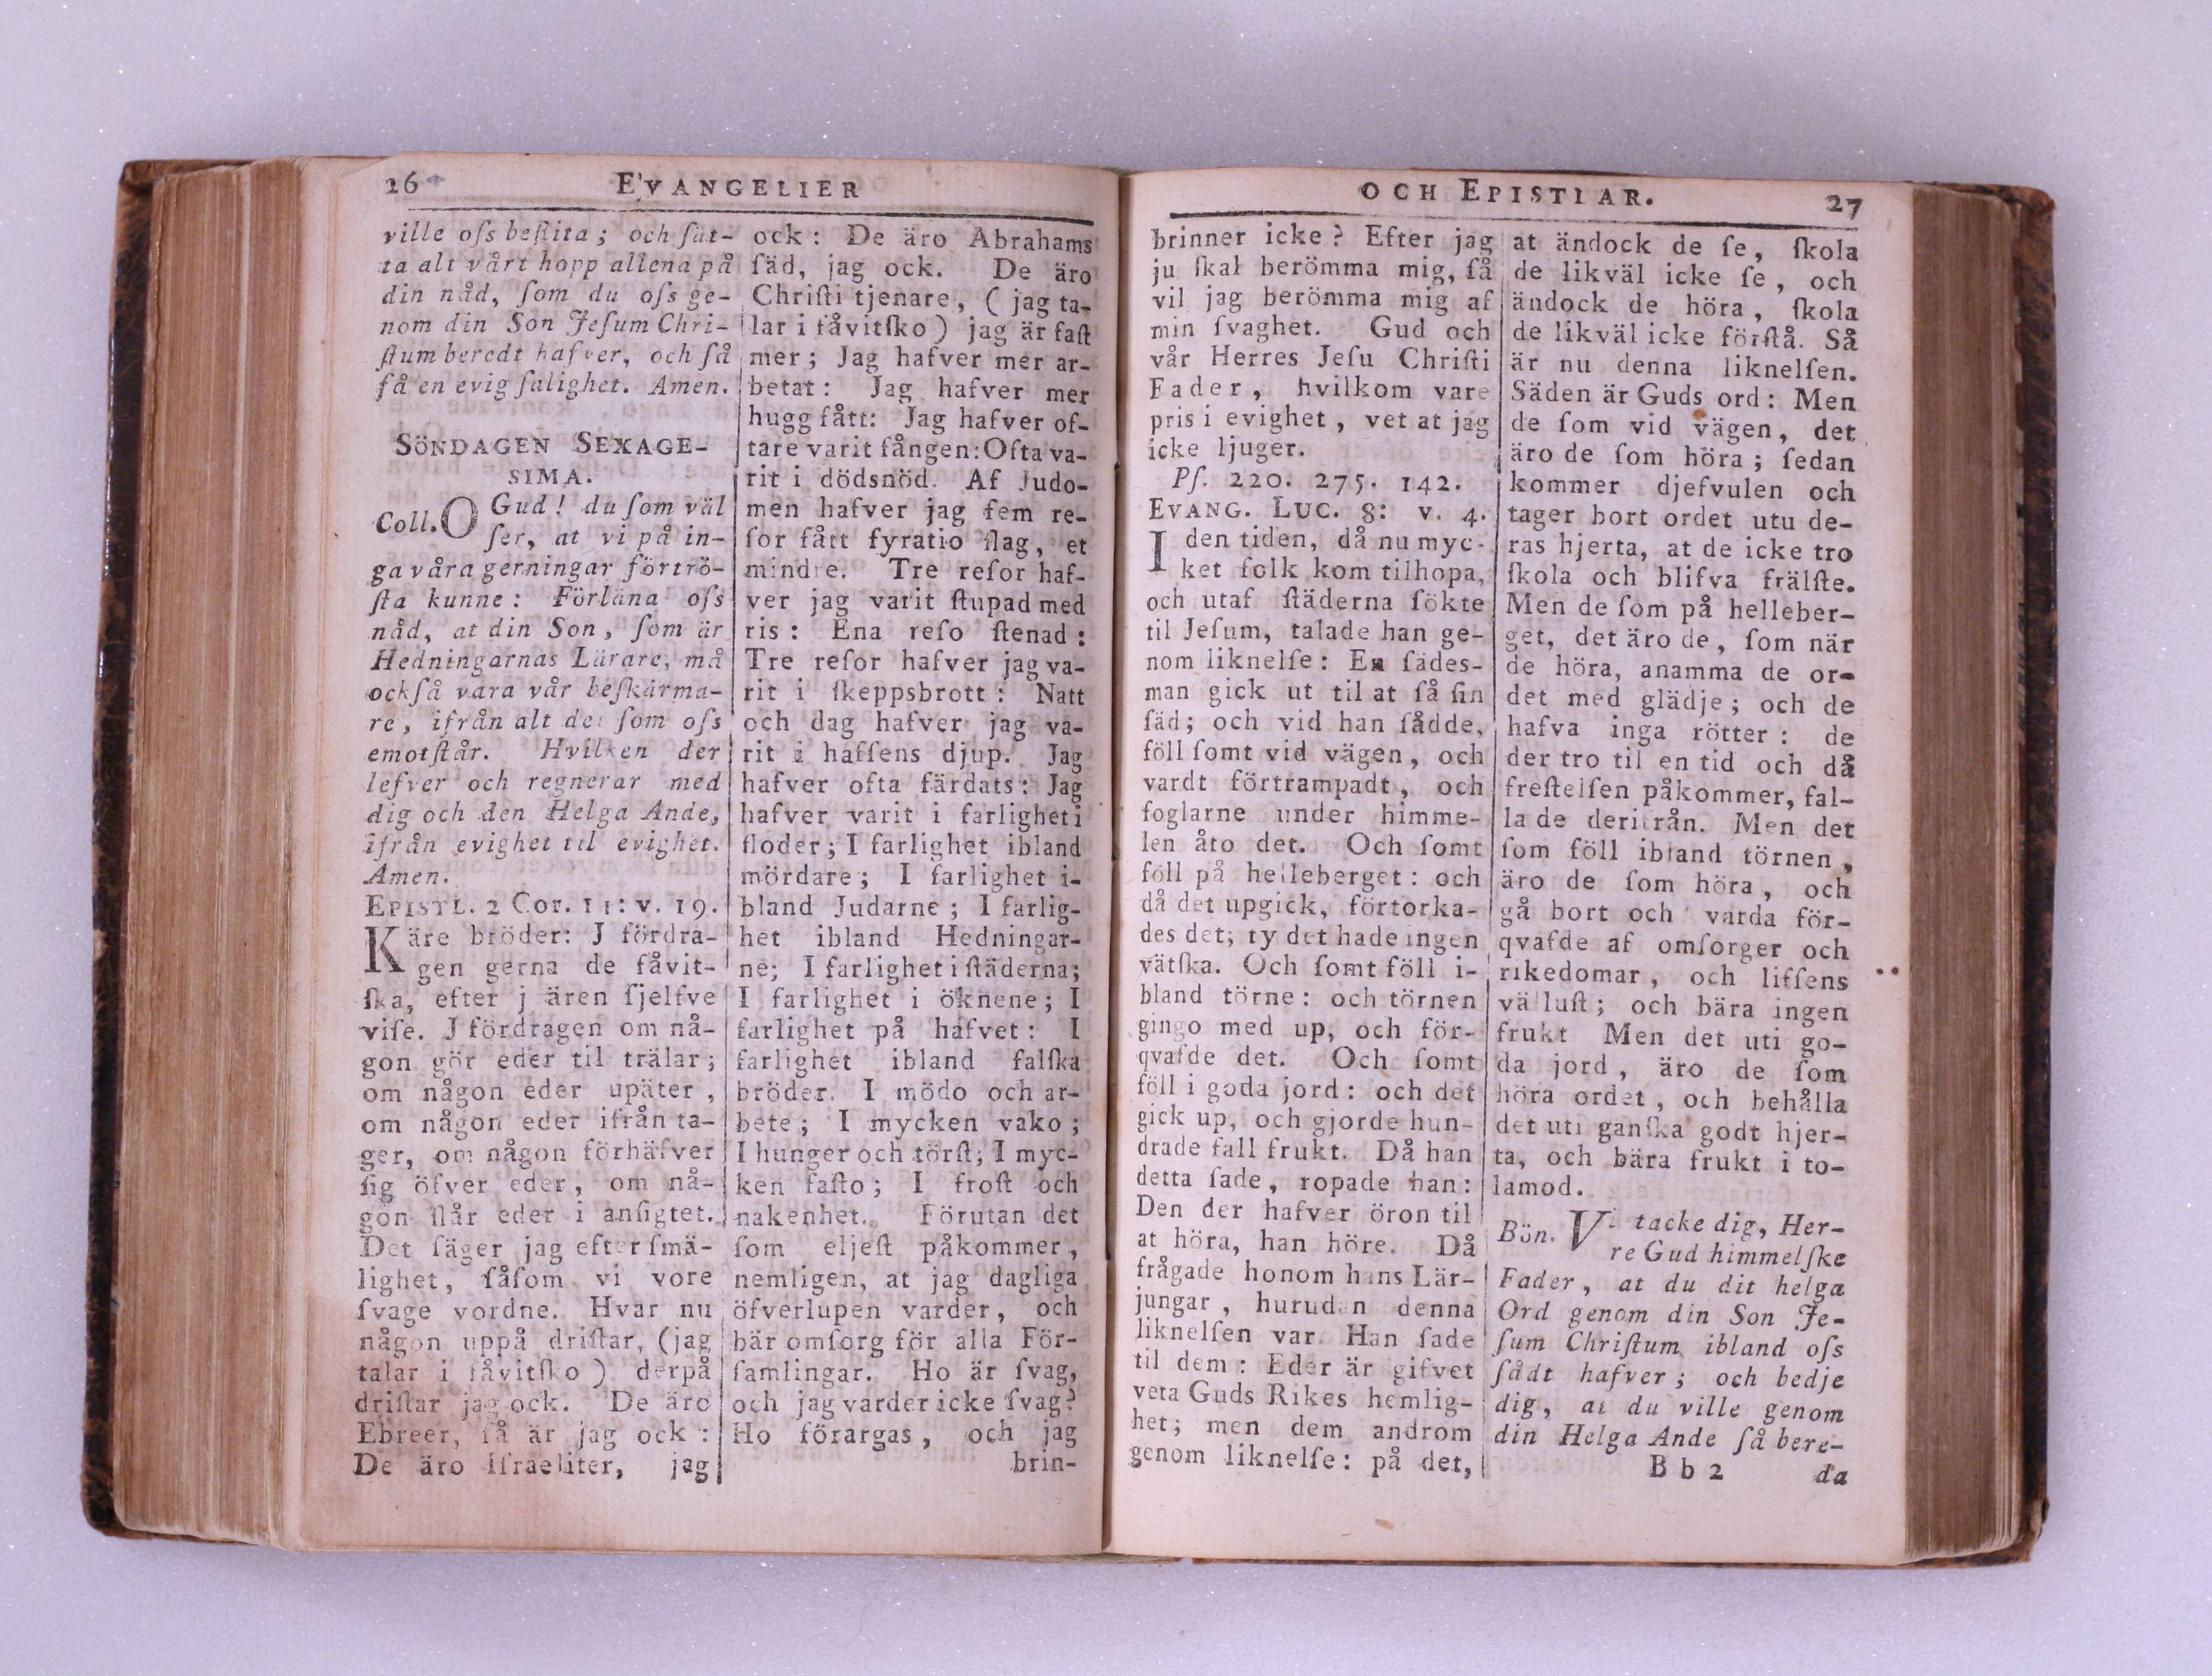 26 EVANGELIER
ville oſs beſlita; och ſät-
ta alt vårt hopp allena på
din nåd, ſom du oſs ge-
nom din Son Jeſum Chri-
ſtum beredt hafver, och ſå
få en evig ſalighet. Amen.
SÖNDAGEN SEXAGE-
SIMA.
Coll. O Gud! du ſom väl
ſer, at vi på in-
ga våra gerningar förtrö-
ſta kunne: Förläna oſs
nåd, at din Son, ſom är
Hedningarnas Lärare, må
ockſå vara vår beſkärma-
re, ifrån alt det ſom oſs
emotſtår. Hvilken der
lefver och regnerar med
dig och den Helga Ande,
ifrån evighet til evighet.
Amen.
EPISTL. 2 Cor. 11: v. 19.
Käre bröder: J fördra-
gen gerna de fåvit-
ſka, efter j ären ſjelfve
viſe. J fördragen om nå-
gon gör eder til trälar;
om någon eder upäter,
om någon eder ifrån ta-
ger, om någon förhäfver
ſig öfver eder, om nå-
gon ſlår eder i anſigtet.
Det ſäger jag efter ſmä-
lighet, ſåſom vi vore
ſvage vordne. Hvar nu
någon uppå driſtar, (jag
talar i fåvitſko) derpå
driſtar jag ock. De äro
Ebreer, ſå är jag ock:
De äro Iſraeliter, jag
ock: De äro Abrahams
ſäd, jag ock. De äro
Chriſti tjenare, (jag ta-
lar i fåvitſko) jag är faſt
mer; Jag hafver mer ar-
betat: Jag hafver mer
hugg fått: Jag hafver of-
tare varit fången: Ofta va-
rit i dödsnöd. Af Judo-
men hafver jag fem re-
ſor fått fyratio ſlag, et
mindre. Tre reſor haf-
ver jag varit ſtupad med
ris: Ena reſo ſtenad:
Tre reſor hafver jag va-
rit i ſkeppsbrott: Natt
och dag hafver jag va-
rit i hafſens djup. Jag
hafver ofta färdats: Jag
hafver varit i farlighet i
floder; I farlighet ibland
mördare; I farlighet i-
bland Judarne; I farlig-
het ibland Hedningar-
ne; I farlighet i ſtäderna;
I farlighet i öknene; I
farlighet på hafvet: I
farlighet ibland falſka
bröder. I mödo och ar-
bete; I mycken vako;
I hunger och törſt; I myc-
ken faſto; I froſt och
nakenhet. Förutan det
ſom eljeſt påkommer,
nemligen, at jag dagliga
öfverlupen varder, och
bär omſorg för alla För-
ſamlingar. Ho är ſvag,
och jag varder icke ſvag?
Ho förargas, och jag
brin-
OCH EPISTLAR. 27
brinner icke? Efter jag
ju ſkal berömma mig, ſå
vil jag berömma mig af
min ſvaghet. Gud och
vår Herres Jeſu Chriſti
Fader, hvilkom vare
pris i evighet, vet at jag
icke ljuger.
Pſ. 220. 275. 142.
EVANG. LUC. 8: v. 4.
I den tiden, då nu myc-
ket folk kom tilhopa,
och utaf ſtäderna ſökte
til Jeſum, talade han ge-
nom liknelſe: En ſädes-
man gick ut til at ſå ſin
ſäd; och vid han ſådde,
föll ſomt vid vägen, och
vardt förtrampadt, och
foglarne under himme-
len åto det. Och ſomt
föll på helleberget: och
då det upgick, förtorka-
des det; ty det hade ingen
vätſka. Och ſomt föll i-
bland törne: och törnen
gingo med up, och för-
qvafde det. Och ſomt
föll i goda jord: och det
gick up, och gjorde hun-
drade fall frukt. Då han
detta ſade, ropade han:
Den der hafver öron til
at höra, han höre. Då
frågade honom hans Lär-
jungar, hurudan denna
liknelſen var. Han ſade
til dem: Eder är gifvet
veta Guds Rikes hemlig-
het; men dem androm
genom liknelſe: på det,
at ändock de ſe, ſkola
de likväl icke ſe, och
ändock de höra, ſkola
de likväl icke förſtå. Så
är nu denna liknelſen.
Säden är Guds ord: Men
de ſom vid vägen, det
äro de ſom höra; ſedan
kommer djefvulen och
tager bort ordet utu de-
ras hjerta, at de icke tro
ſkola och blifva frälſte.
Men de ſom på helleber-
get, det äro de, ſom när
de höra, anamma de or-
det med glädje; och de
hafva inga rötter: de
der tro til en tid och då
freſtelſen påkommer, fal-
la de derifrån. Men det
ſom föll ibland törnen,
äro de ſom höra, och
gå bort och varda för-
qvafde af omſorger och
rikedomar, och lifſens
välluſt; och bära ingen
frukt Men det uti go-
da jord, äro de ſom
höra ordet, och behålla
det uti ganſka godt hjer-
ta, och bära frukt i to-
lamod.
Bön. Vi tacke dig, Her-
re Gud himmelſke
Fader, at du dit helga
Ord genom din Son Je-
ſum Chriſtum ibland oſs
ſådt hafver; och bedje
dig, at du ville genom
din Helga Ande ſå bere-
B b 2 da